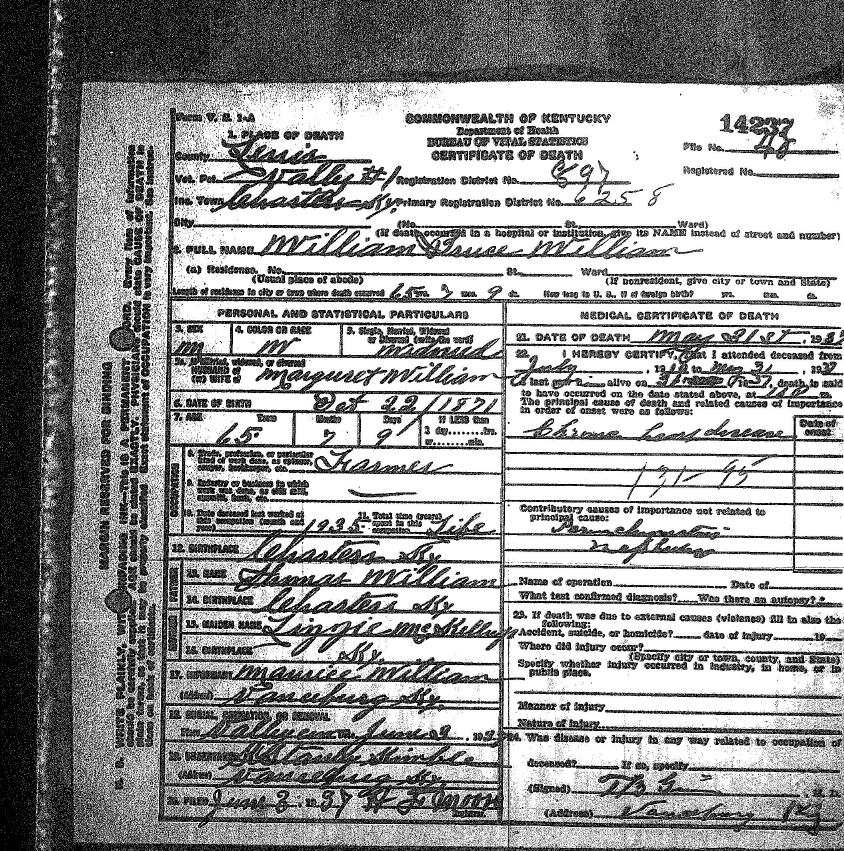 Form V. S. 1-A
COMMONWEALTH OF KENTUCKY
Department of Health
BUREAU OF VITAL STATISTICS
CERTIFICATE OF DEATH
File No.
Registered No.
1. PLACE OF DEATH
County Lewis
Vot. Pct. Valley #1 Registration District No. 897
Inc. Town Charters Ky. Primary Registration District No. 6258
City (No. St. Ward)
(If death occurred in a hospital or institution, give its NAME instead of street and number)
2. FULL NAME William Bruce William
(a) Residence. No. St. Ward
(Usual place of abode) (If nonresident, give city or town and State)
Length of residence in city or town where death occurred 65 yrs. 7 mos. 9 ds. How long in U. S., if of foreign birth? yrs. mos. ds.
PERSONAL AND STATISTICAL PARTICULARS
3. SEX M
4. COLOR OR RACE W
5. Single, Married, Widowed or Divorced (write the word)
5a. If married, widowed, or divorced HUSBAND of (or) WIFE of Margaret William
6. DATE OF BIRTH Oct 22 / 1871
7. AGE Years 65 Months 7 Days 9 If LESS than 1 day, hrs. or min.
8. Trade, profession, or particular kind of work done, as spinner, sawyer, bookkeeper, etc. Farmer
9. Industry or business in which work was done, as silk mill,
10. Date deceased last worked at this occupation (month and year) 1935
11. Total time (years) spent in this occupation Life
12. BIRTHPLACE Charters Ky
13. NAME Thomas William
14. BIRTHPLACE Charters Ky
15. MAIDEN NAME Lizzie
16. BIRTHPLACE Ky.
17. INFORMANT Maurice William
(Address) Vanceburg Ky.
18. BURIAL, CREMATION OR REMOVAL
Place Valley cem Date June 2, 1937
19. UNDERTAKER Stanley Kimble
(Address) Vanceburg Ky
20. FILED June 2, 1937
Registrar.
MEDICAL CERTIFICATE OF DEATH
21. DATE OF DEATH May 31st, 1937
22. I HEREBY CERTIFY, That I attended deceased from
July to May 31, 1937
I last saw alive on death is said
to have occurred on the date stated above, at m.
The principal cause of death and related causes of importance
in order of onset were as follows:
Date of onset
disease
131 - 95
Contributory causes of importance not related to
principal cause:
Parenchymatous
nephritis
Name of operation Date of
What test confirmed diagnosis? Was there an autopsy?
23. If death was due to external causes (violence) fill in also the
following:
Accident, suicide, or homicide? date of injury 19
Where did injury occur?
(Specify city or town, county, and State)
Specify whether injury occurred in industry, in home, or in
public place.
Manner of injury
Nature of injury
24. Was disease or injury in any way related to occupation of
deceased? If so, specify
(Signed) M. D.
(Address) Vanceburg Ky
MARGIN RESERVED FOR BINDING